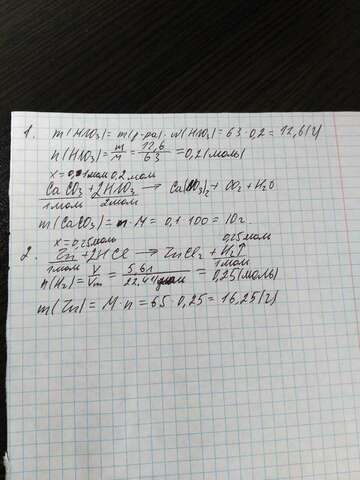 1. m(HNO3) = m(р-ра) · w(HNO3) = 63 · 0,2 = 12,6(г)
n(HNO3) = m/M = 12,6/63 = 0,2(моль)
x = 0,1 моль 0,2 моль
CaCO3 + 2HNO3 → Ca(NO3)2 + CO2 + H2O
1 моль 2 моль
m(CaCO3) = n · M = 0,1 · 100 = 10г
x = 0,25 моль 0,25 моль
2. Zn + 2HCl → ZnCl2 + H2↑
1 моль 1 моль
n(H2) = V/Vm = 5,6л/22,4л/моль = 0,25(моль)
m(Zn) = M · n = 65 · 0,25 = 16,25(г)